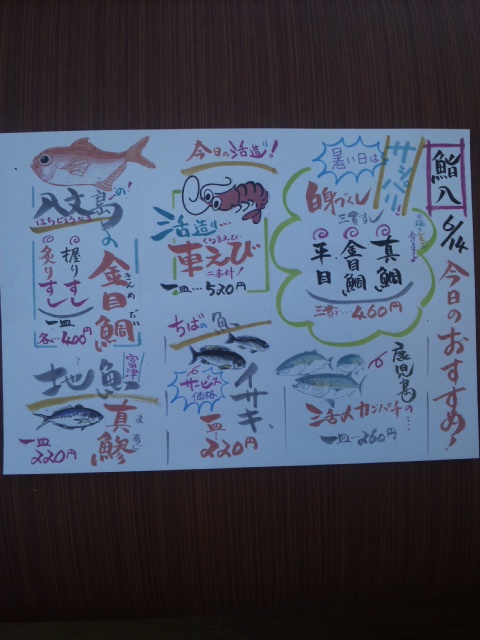 鮨八
6/14
今日のおすすめ!
暑い日は
サッパリ!
白身づくし
三貫すし
真鯛
金目鯛
平目
三貫… 460円
鹿児島
活〆カンパチの…
一皿…260円
今日の活造りは!
活造り…
くるまえび
車えび
二本付!
一皿…520円
ちばの魚
イサキ、
サービス
価格
一皿…
220円
八丈島の!
はちじょうじま
きんめだい
金目鯛
握りすし
炙りすし
一皿
各…400円
富津
地魚
真鯵
一皿
220円